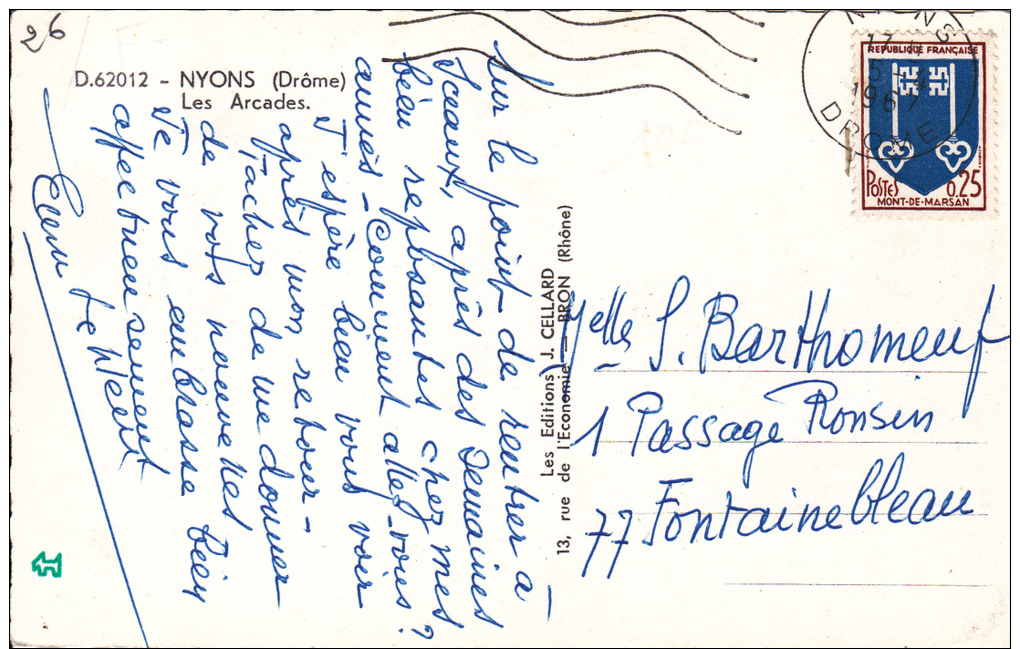 26
D.62012 - NYONS (Drôme)
Les Arcades.
Sur le point de rentrer à
Sceaux, après des semaines
bien reposantes chez mes
amies - Comment allez-vous?
J'espère bien vous voir
après mon retour -
Tachez de me donner
de vos nouvelles
Je vous embrasse bien
affectueusement
Les Editions J. CELLARD
13, rue de l'Economie - BRON (Rhône)
NYONS
17
5
1967
DROME
REPUBLIQUE FRANÇAISE
POSTES
0.25
MONT-DE-MARSAN
Melle S. Barthomeuf
1 Passage Ronsin
77 Fontainebleau